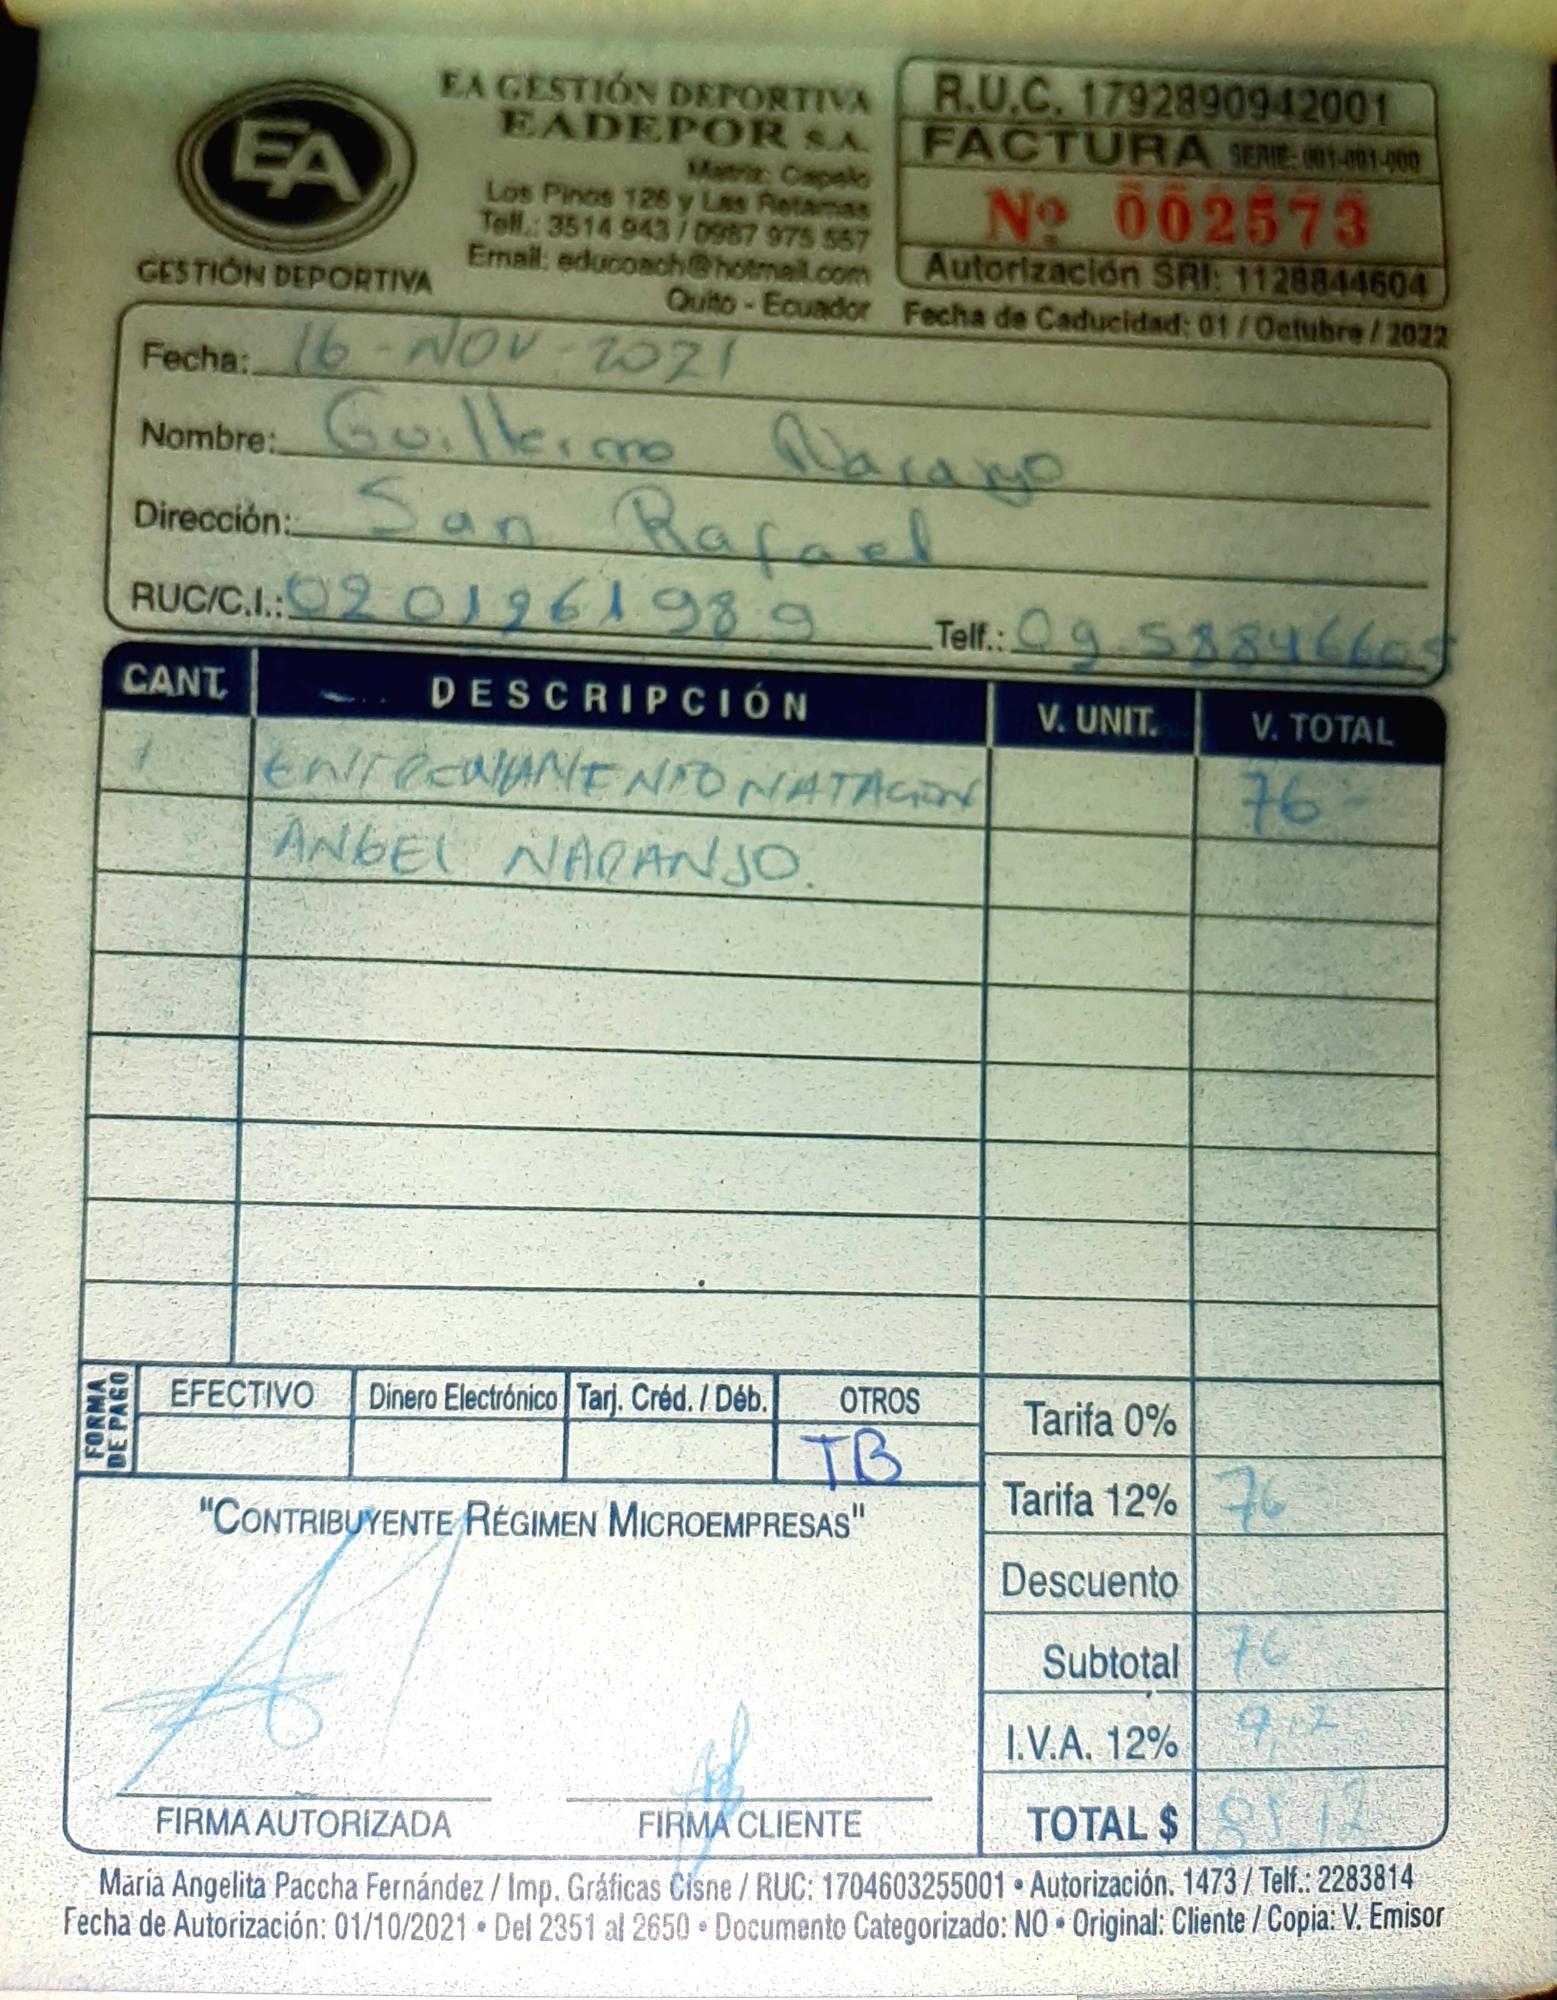 EA
GESTIÓN DEPORTIVA
EA GESTIÓN DEPORTIVA
EADEPOR S.A.
Matriz: Capelo
Los Pinos 126 y Las Retamas
Telf.: 3514 943 / 0987 975 557
Email: educoach@hotmail.com
Quito - Ecuador
R.U.C. 1792890942001
FACTURA SERIE: 001-001-000
Nº 002573
Autorización SRI: 1128844604
Fecha de Caducidad: 01 / Octubre / 2022
Fecha: 16-NOV-2021
Nombre: Guillermo Naranjo
Dirección: San Rafael
RUC/C.I.: 0201261989 Telf.: 09 58846605
CANT. DESCRIPCIÓN V. UNIT. V. TOTAL
1 ENTRENAMIENTO NATACION 76-
ANGEL NARANJO.
FORMA DE PAGO
EFECTIVO Dinero Electrónico Tarj. Créd. / Déb. OTROS
TB
Tarifa 0%
Tarifa 12% 76
Descuento
Subtotal 76
I.V.A. 12% 9,12
TOTAL $ 85,12
"CONTRIBUYENTE RÉGIMEN MICROEMPRESAS"
FIRMA AUTORIZADA FIRMA CLIENTE
María Angelita Paccha Fernández / Imp. Gráficas Cisne / RUC: 1704603255001 • Autorización. 1473 / Telf.: 2283814
Fecha de Autorización: 01/10/2021 • Del 2351 al 2650 • Documento Categorizado: NO • Original: Cliente / Copia: V. Emisor